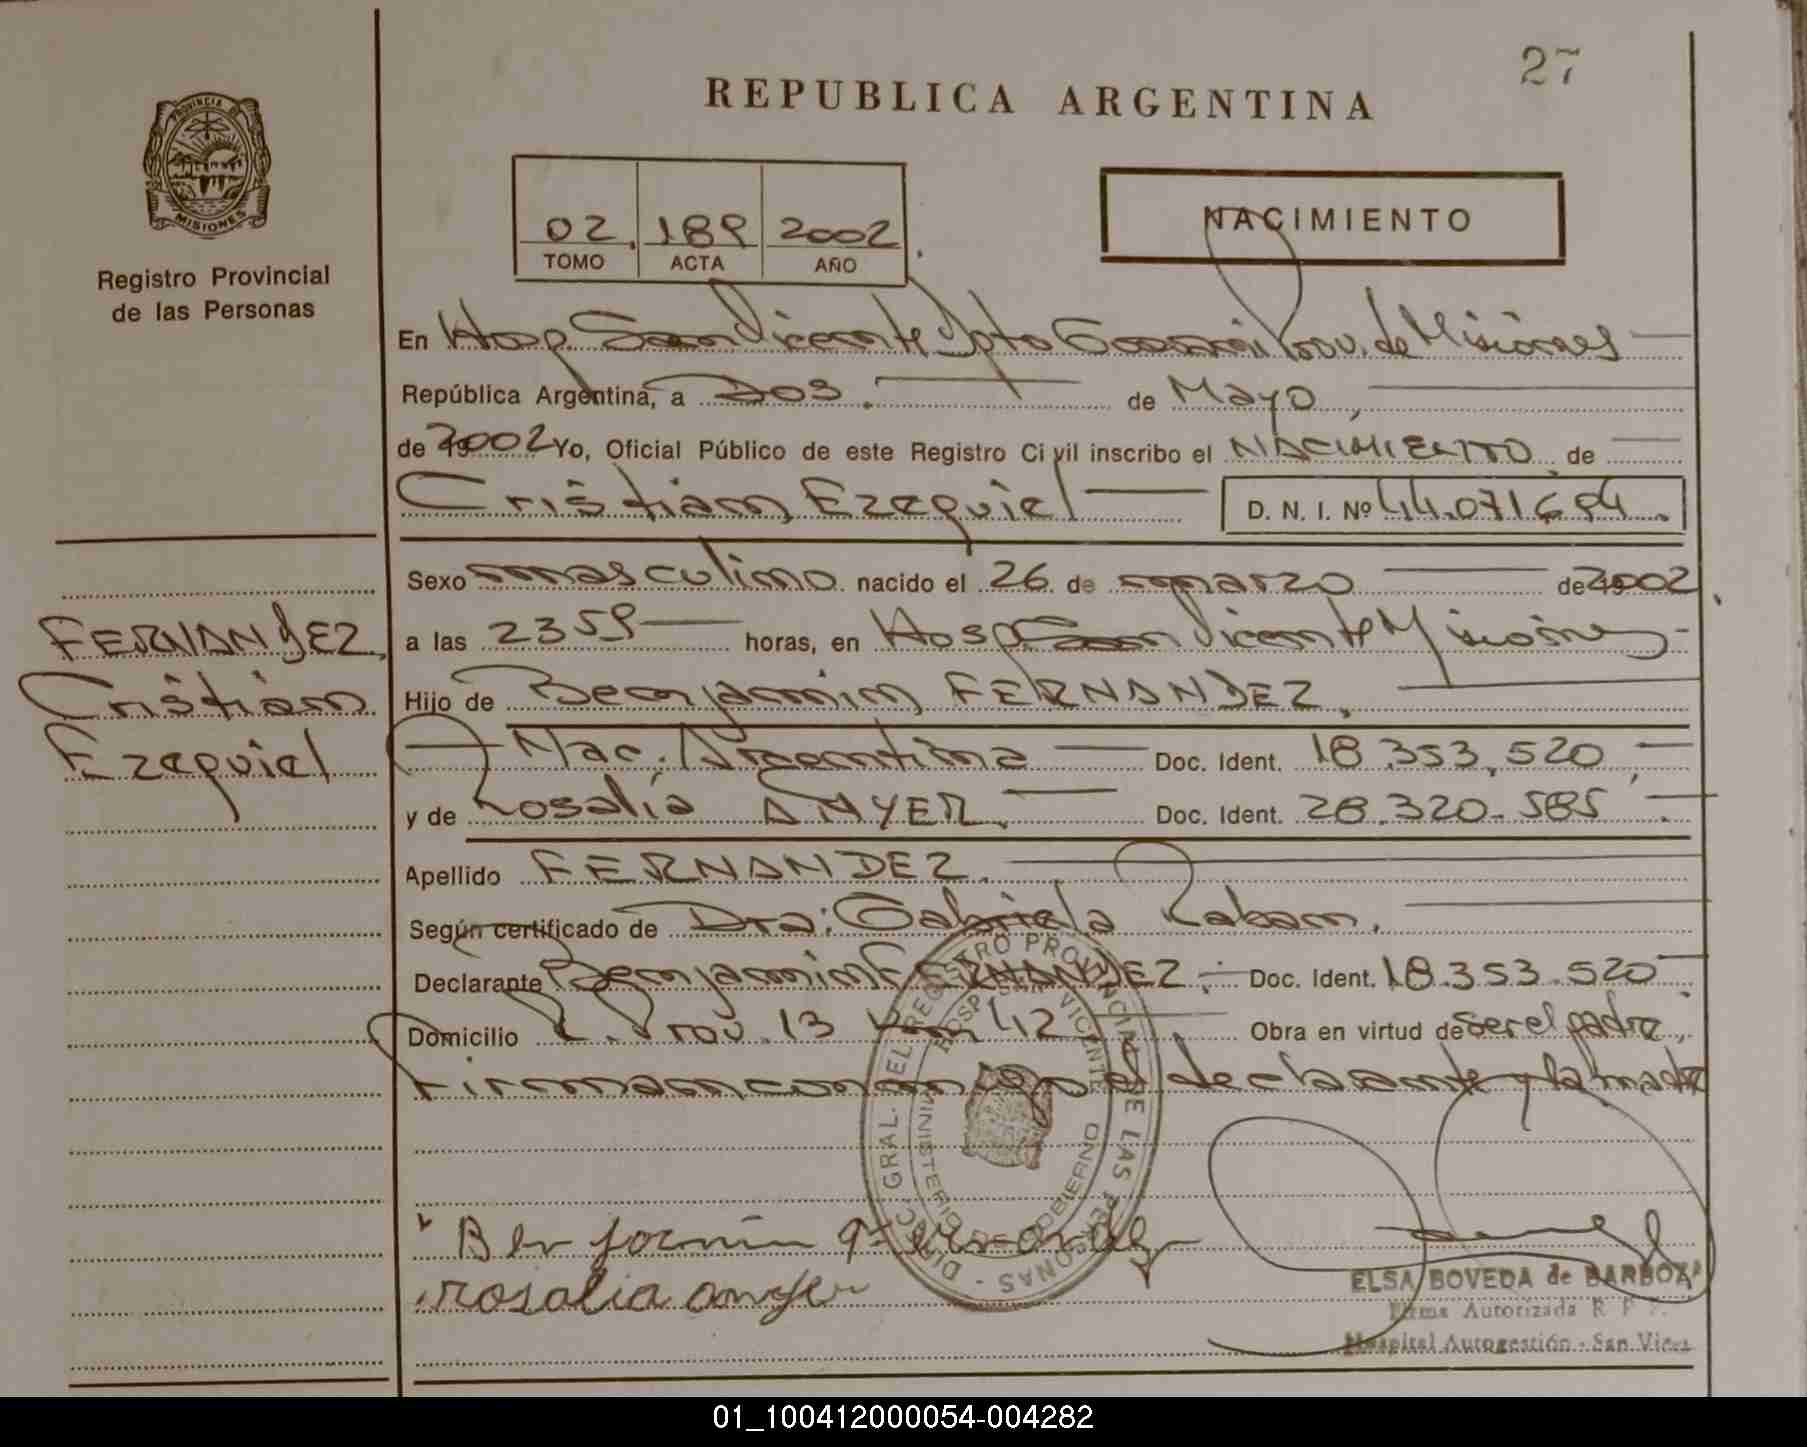 27
REPUBLICA ARGENTINA
PROVINCIA DE MISIONES
Registro Provincial
de las Personas
02. 189 2002.
TOMO ACTA AÑO
NACIMIENTO
En Hosp San Vicente Dpto Guaraní Prov. de Misiones
República Argentina, a Dos. de Mayo,
de 2002 Yo, Oficial Público de este Registro Civil inscribo el NACIMIENTO de
Cristian Ezequiel D. N. I. Nº 44.071.694.
Sexo masculino nacido el 26 de marzo de 2002.
a las 23 59 horas, en Hosp San Vicente Misiones
Hijo de Benjamin FERNANDEZ,
Nac. Argentina Doc. Ident. 18.353.520,
y de Rosalia ANYER. Doc. Ident. 28.320.585.
Apellido FERNANDEZ.
Según certificado de Dra: Gabriela Raban.
Declarante Benjamin FERNANDEZ. Doc. Ident. 18.353.520
Domicilio R. Prov. 13 km 112 Obra en virtud de ser el padre,
Firman conmigo el declarante y la madre
FERNANDEZ,
Cristian
Ezequiel
DIRECC. GRAL. EL REGISTRO PROVINCIAL DE LAS PERSONAS
HOSP. SAN VICENTE
MINISTERIO DE GOBIERNO
rosalia anyer
ELSA BOVEDA de BARBOZA
Firma Autorizada R P P.
Hospital Autogestión - San Vice
01_100412000054-004282